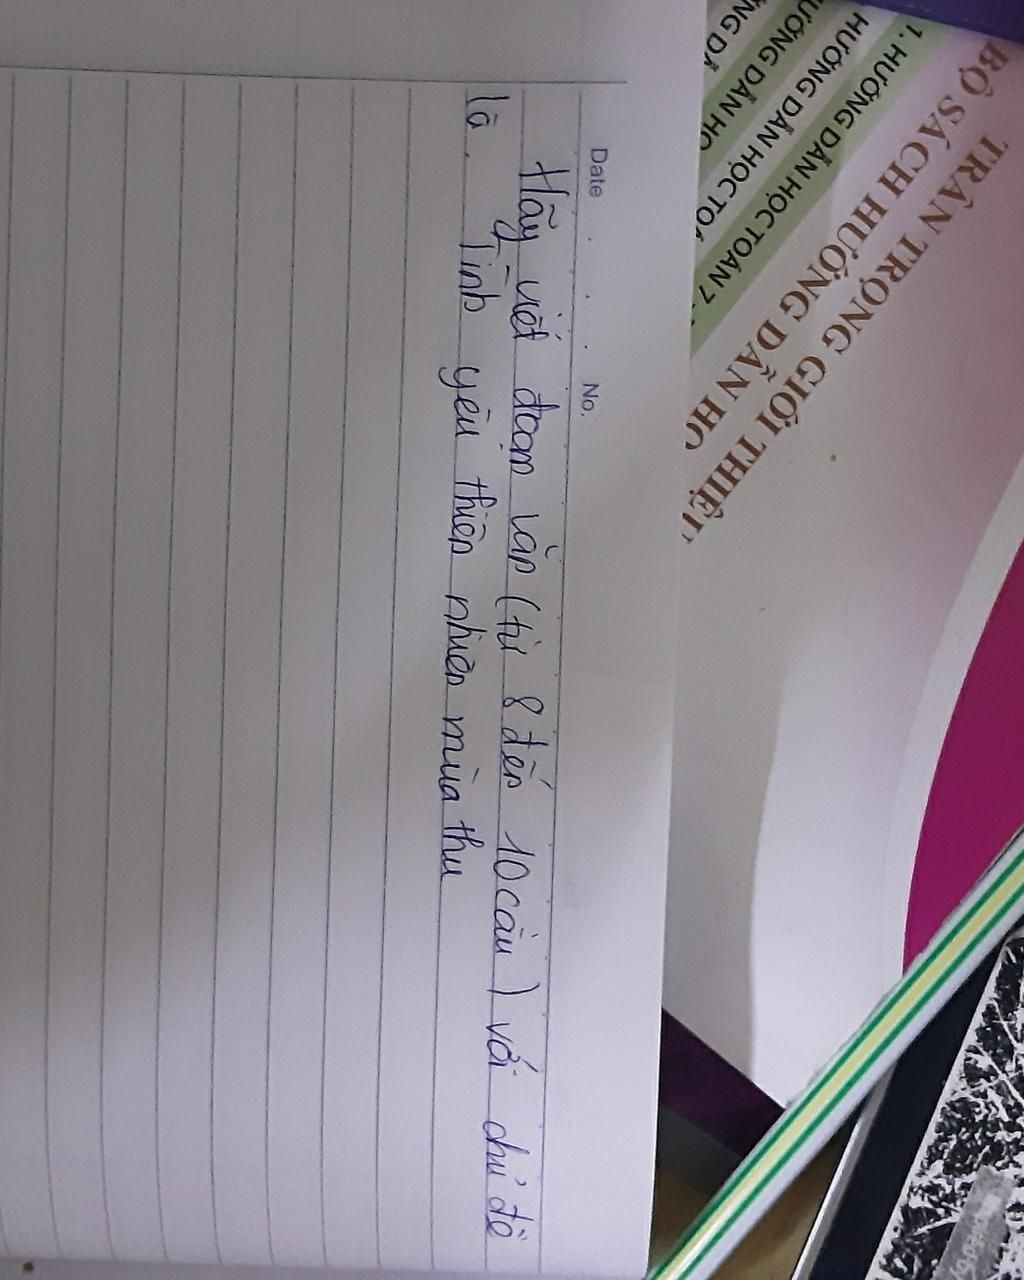 Date . . . No.
Hãy viết đoạn văn (từ 8 đến 10 câu) với chủ đề
là. Tình yêu thiên nhiên mùa thu
TRÂN TRỌNG GIỚI THIỆU
BỘ SÁCH HƯỚNG DẪN HỌ
1. HƯỚNG DẪN HỌC TOÁN 7
HƯỚNG DẪN HỌC TOÁ
ƯỚNG DẪN HỌ
NG DẪ